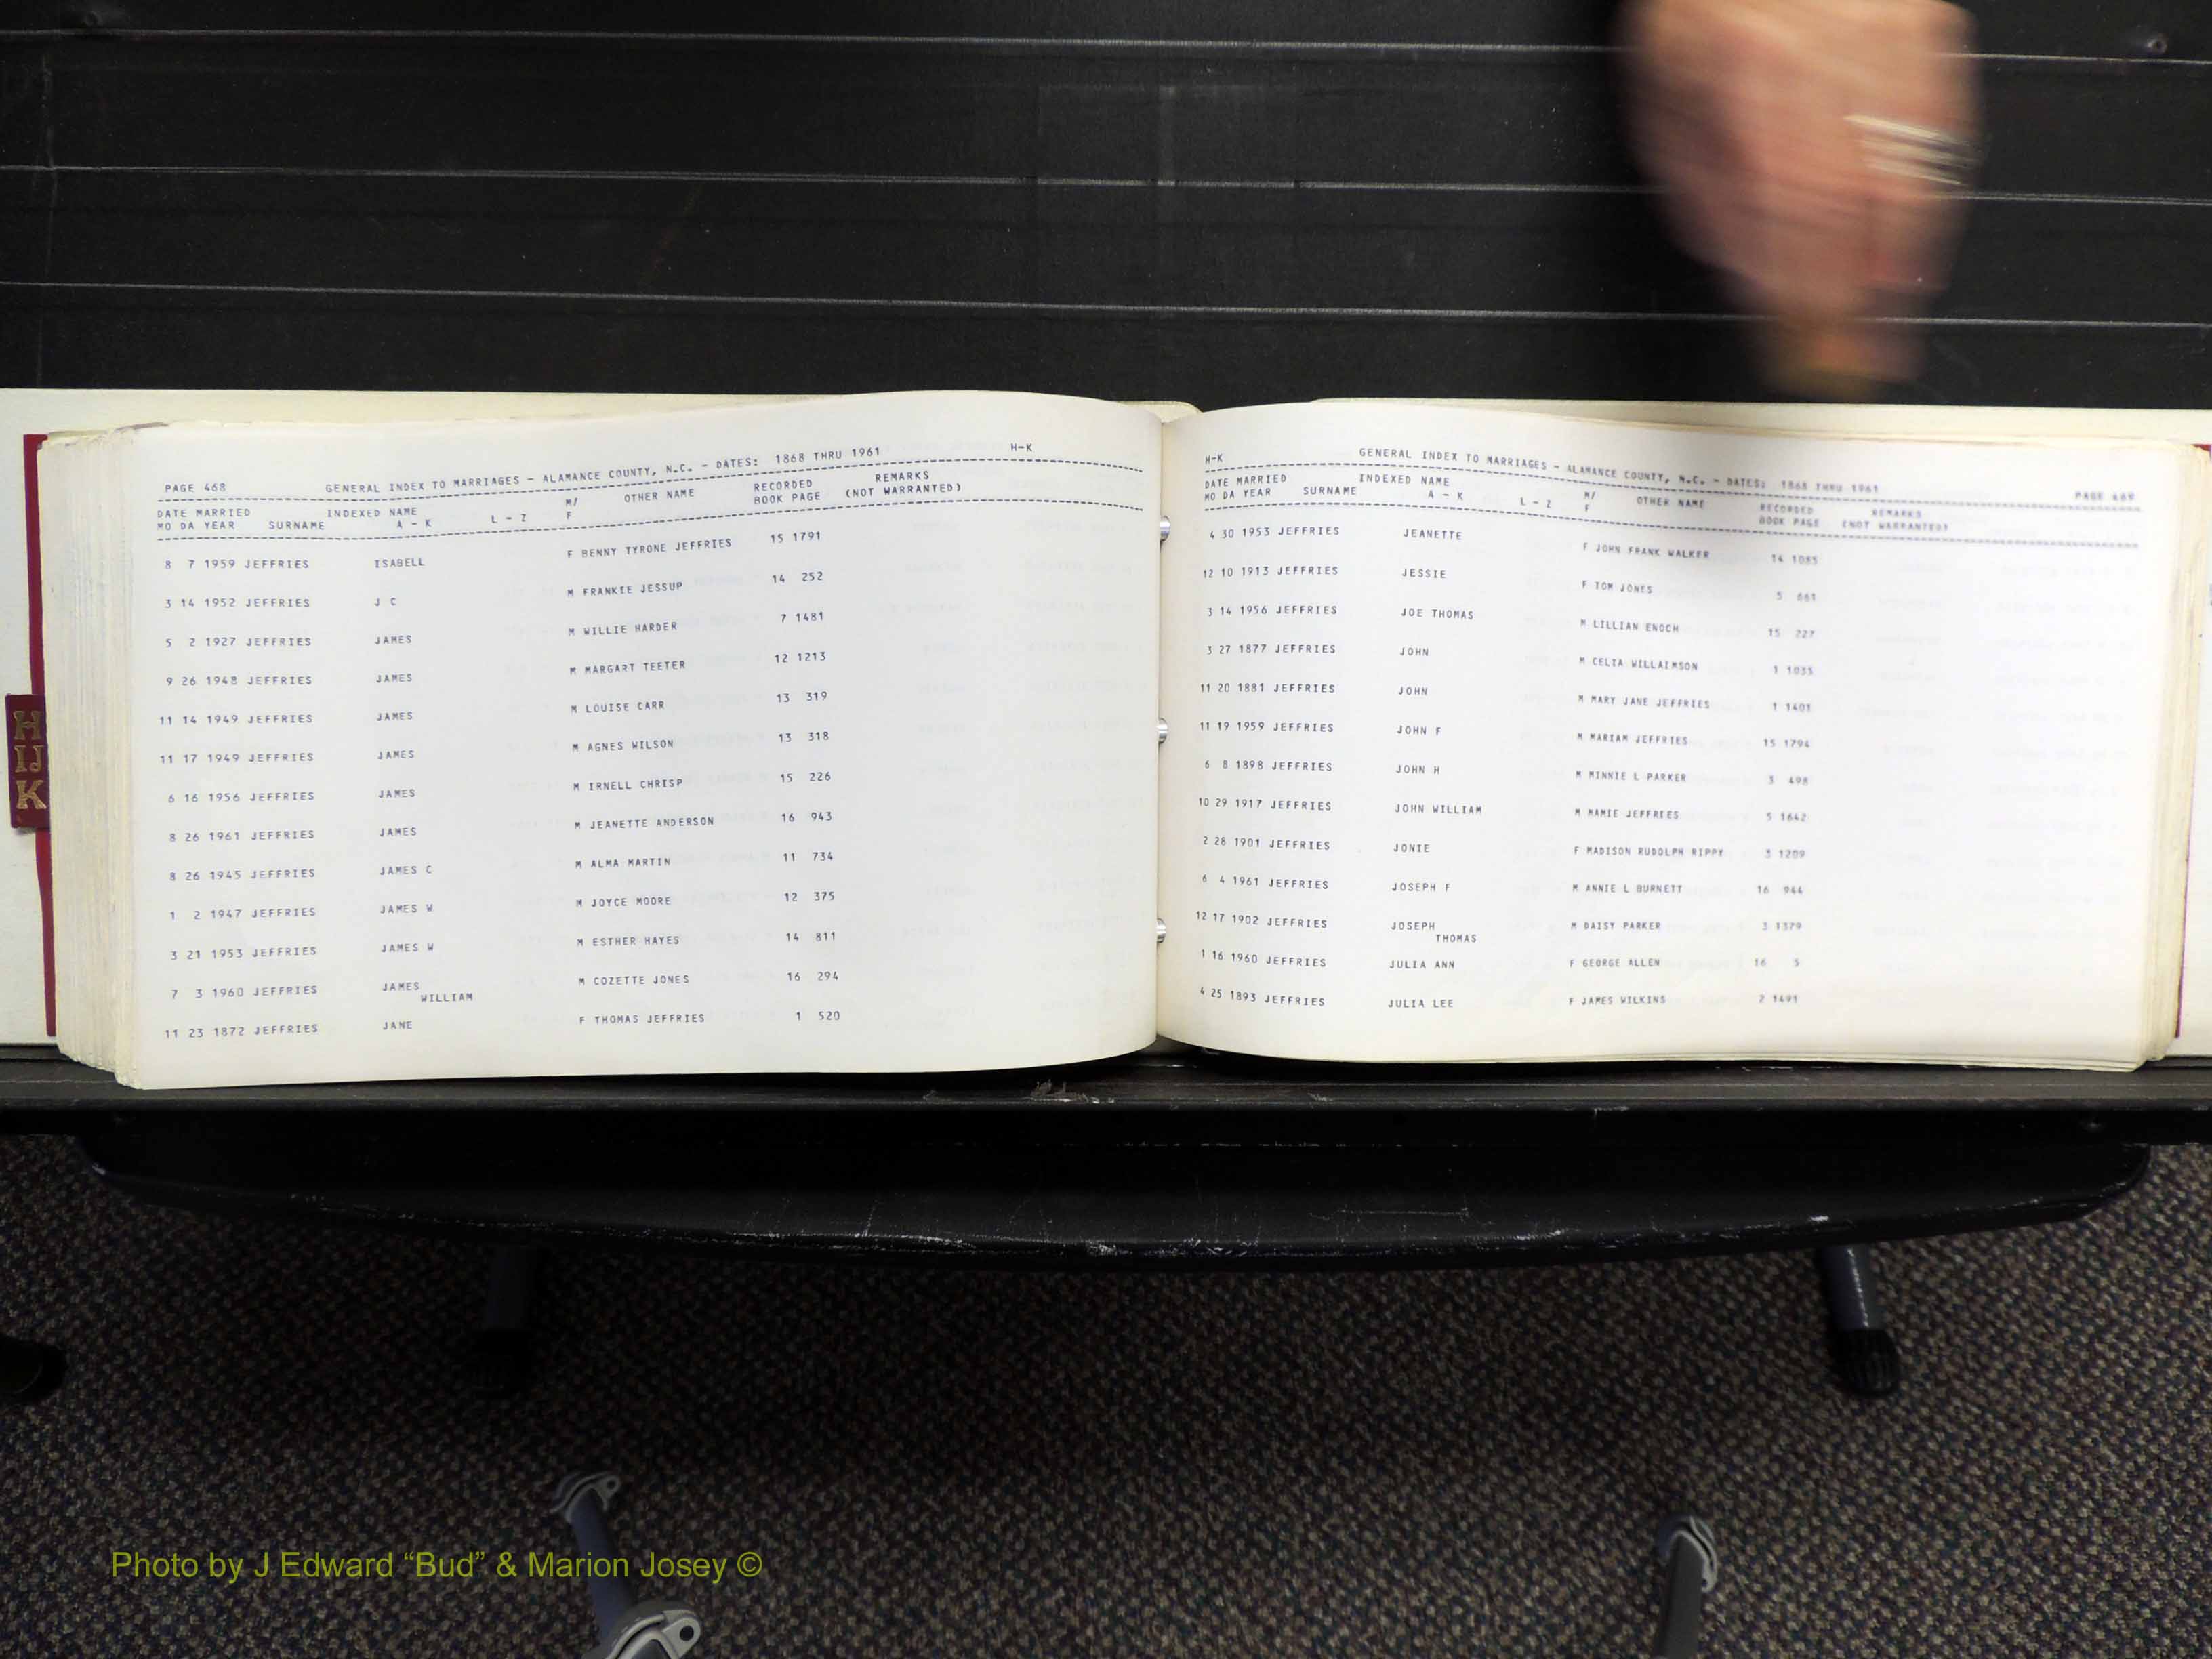 H
IJ
K
PAGE 468 GENERAL INDEX TO MARRIAGES - ALAMANCE COUNTY, N.C. - DATES: 1868 THRU 1961 H-K
DATE MARRIED INDEXED NAME M/ OTHER NAME RECORDED REMARKS
MO DA YEAR SURNAME A - K L - Z F BOOK PAGE (NOT WARRANTED)
8 7 1959 JEFFRIES ISABELL F BENNY TYRONE JEFFRIES 15 1791
3 14 1952 JEFFRIES J C M FRANKIE JESSUP 14 252
5 2 1927 JEFFRIES JAMES M WILLIE HARDER 7 1481
9 26 1948 JEFFRIES JAMES M MARGART TEETER 12 1213
11 14 1949 JEFFRIES JAMES M LOUISE CARR 13 319
11 17 1949 JEFFRIES JAMES M AGNES WILSON 13 318
6 16 1956 JEFFRIES JAMES M IRNELL CHRISP 15 226
8 26 1961 JEFFRIES JAMES M JEANETTE ANDERSON 16 943
8 26 1945 JEFFRIES JAMES C M ALMA MARTIN 11 734
1 2 1947 JEFFRIES JAMES W M JOYCE MOORE 12 375
3 21 1953 JEFFRIES JAMES W M ESTHER HAYES 14 811
7 3 1960 JEFFRIES JAMES M COZETTE JONES 16 294
WILLIAM
11 23 1872 JEFFRIES JANE F THOMAS JEFFRIES 1 520
H-K GENERAL INDEX TO MARRIAGES - ALAMANCE COUNTY, N.C. - DATES: 1868 THRU 1961 PAGE 469
DATE MARRIED INDEXED NAME M/ OTHER NAME RECORDED REMARKS
MO DA YEAR SURNAME A - K L - Z F BOOK PAGE (NOT WARRANTED)
4 30 1953 JEFFRIES JEANETTE F JOHN FRANK WALKER 14 1085
12 10 1913 JEFFRIES JESSIE F TOM JONES 5 661
3 14 1956 JEFFRIES JOE THOMAS M LILLIAN ENOCH 15 227
3 27 1877 JEFFRIES JOHN M CELIA WILLAIMSON 1 1035
11 20 1881 JEFFRIES JOHN M MARY JANE JEFFRIES 1 1401
11 19 1959 JEFFRIES JOHN F M MARIAM JEFFRIES 15 1794
6 8 1898 JEFFRIES JOHN H M MINNIE L PARKER 3 498
10 29 1917 JEFFRIES JOHN WILLIAM M MAMIE JEFFRIES 5 1642
2 28 1901 JEFFRIES JONIE F MADISON RUDOLPH RIPPY 3 1209
6 4 1961 JEFFRIES JOSEPH F M ANNIE L BURNETT 16 944
12 17 1902 JEFFRIES JOSEPH M DAISY PARKER 3 1379
THOMAS
1 16 1960 JEFFRIES JULIA ANN F GEORGE ALLEN 16 5
4 25 1893 JEFFRIES JULIA LEE F JAMES WILKINS 2 1491
Photo by J Edward “Bud” & Marion Josey ©